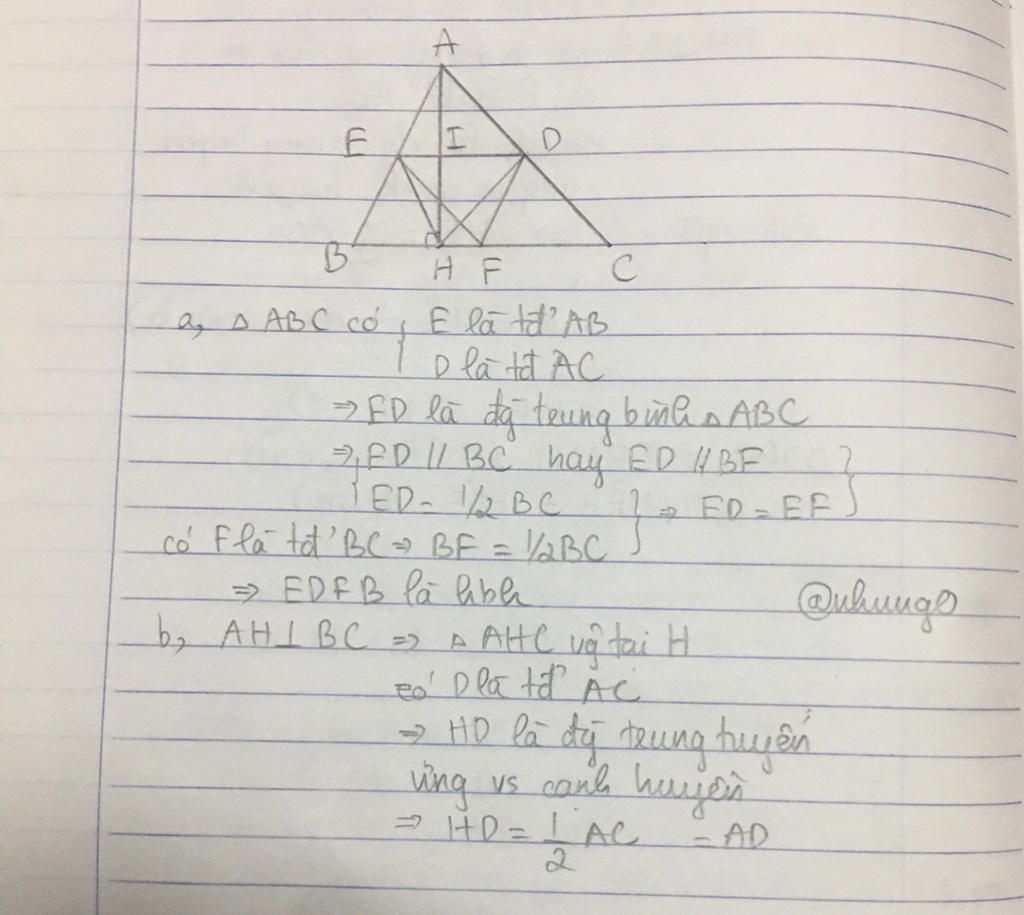 A
E I D
B H F C
a, △ ABC có { E là tđ' AB
D là tđ AC
⇒ ED là đg trung bình △ ABC
⇒ { ED // BC hay ED // BF }
ED = 1/2 BC } ⇒ ED = EF
có F là tđ' BC ⇒ BF = 1/2 BC
⇒ EDFB là hbh
@nhung0
b, AH ⊥ BC ⇒ △ AHC vg tại H
có D là tđ' AC
⇒ HD là đg trung tuyến
ứng vs cạnh huyền
⇒ HD = 1/2 AC = AD